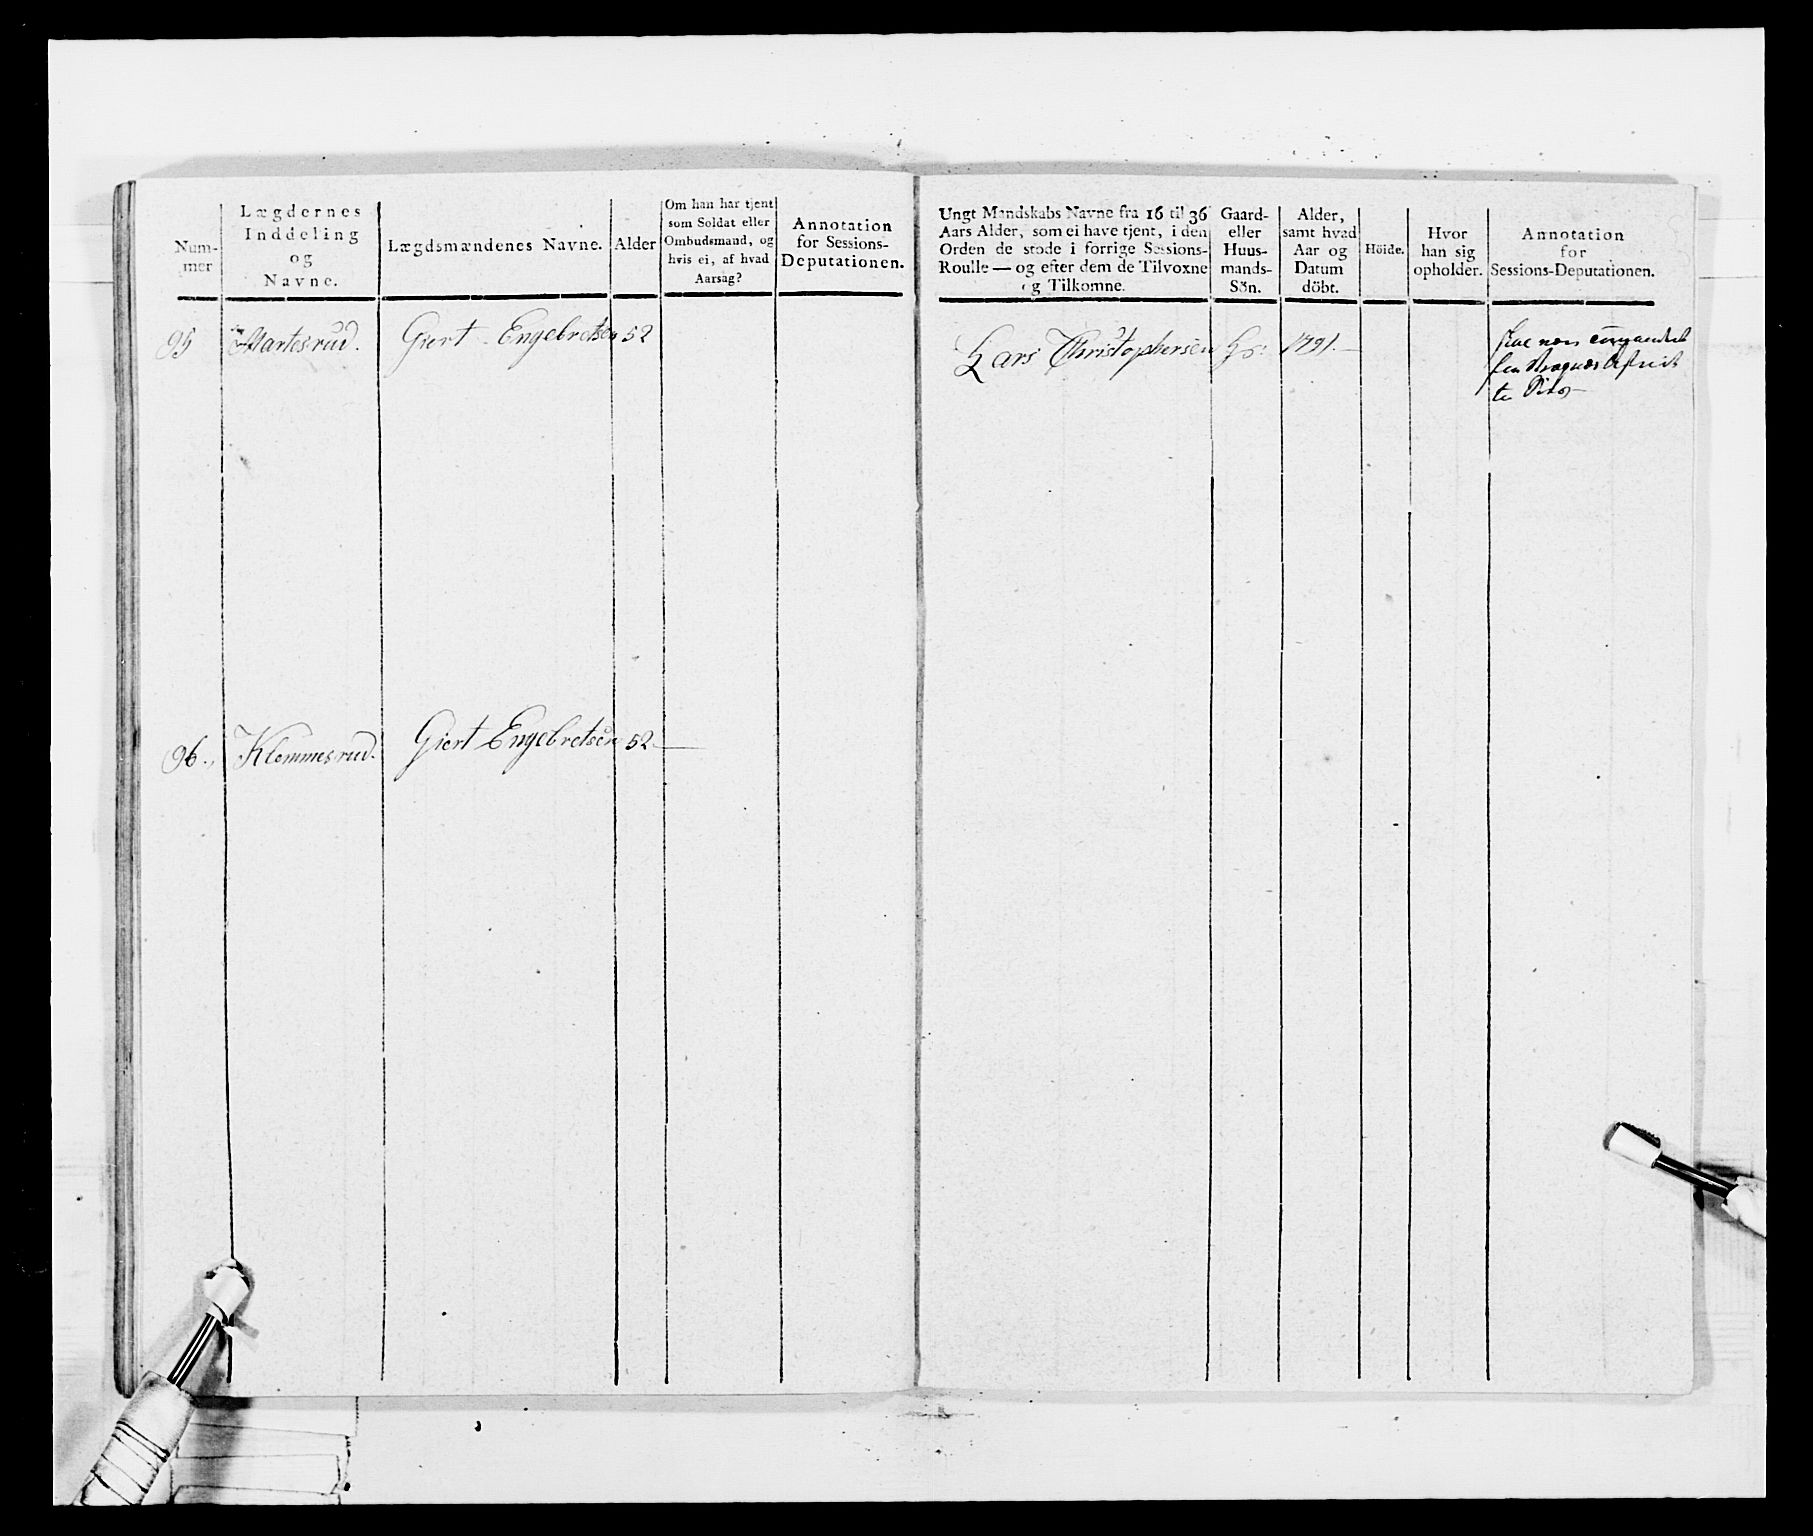 Num-
mer
Lægdernes
Inddeling
og
Navne.
Lægdsmændenes Navne.
Alder
Om han har tjent
som Soldat eller
Ombudsmand, og
hvis ei, af hvad
Aarsag?
Annotation
for Sessions-
Deputationen.
95 Martesrud. Giert Engebretsen 52
96. Klemmesrud. Giert Engebretsen 52
Ungt Mandskabs Navne fra 16 til 36
Aars Alder, som ei have tjent, i den
Orden de stode i forrige Sessions-
Roulle — og efter dem de Tilvoxne
og Tilkomne.
Gaard-
eller
Huus-
mands-
Sön.
Alder,
samt hvad
Aar og
Datum
döbt.
Höide.
Hvor
han sig
opholder.
Annotation
for
Sessions-Deputationen.
Lars Christophersen 1791.